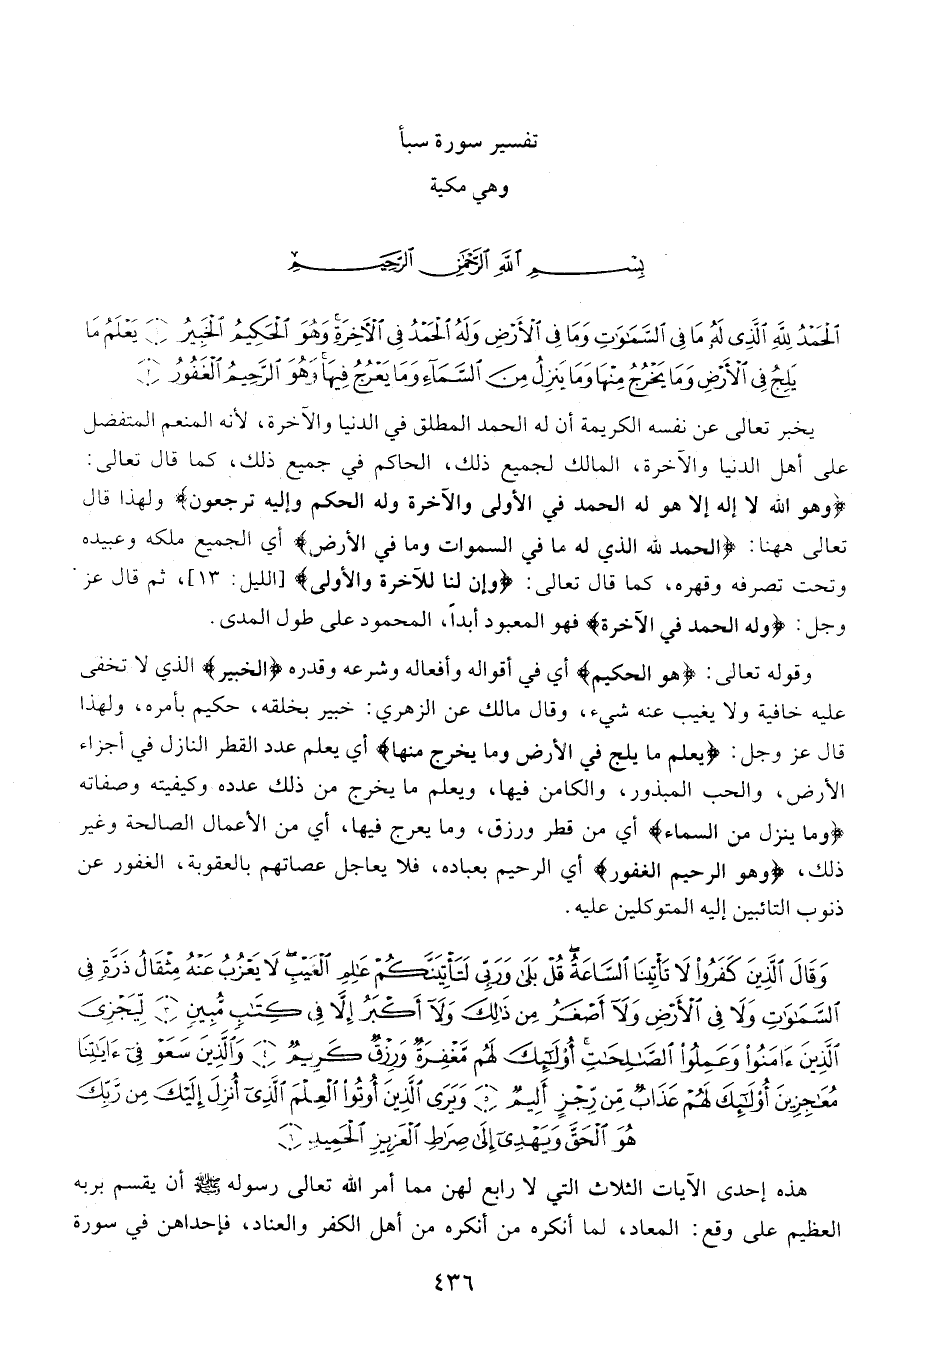 تفسير سورة سبأ
وهي مكية
بِسْمِ ٱللَّهِ ٱلرَّحْمَٰنِ ٱلرَّحِيمِ
ٱلْحَمْدُ لِلَّهِ ٱلَّذِى لَهُۥ مَا فِى ٱلسَّمَٰوَٰتِ وَمَا فِى ٱلْأَرْضِ وَلَهُ ٱلْحَمْدُ فِى ٱلْءَاخِرَةِ ۚ وَهُوَ ٱلْحَكِيمُ ٱلْخَبِيرُ ﴿١﴾ يَعْلَمُ مَا
يَلِجُ فِى ٱلْأَرْضِ وَمَا يَخْرُجُ مِنْهَا وَمَا يَنزِلُ مِنَ ٱلسَّمَآءِ وَمَا يَعْرُجُ فِيهَا ۚ وَهُوَ ٱلرَّحِيمُ ٱلْغَفُورُ ﴿٢﴾
يخبر تعالى عن نفسه الكريمة أن له الحمد المطلق في الدنيا والآخرة، لأنه المنعم المتفضل
على أهل الدنيا والآخرة، المالك لجميع ذلك، الحاكم في جميع ذلك، كما قال تعالى:
﴿وهو الله لا إله إلا هو له الحمد في الأولى والآخرة وله الحكم وإليه ترجعون﴾ ولهذا قال
تعالى ههنا: ﴿الحمد لله الذي له ما في السموات وما في الأرض﴾ أي الجميع ملكه وعبيده
وتحت تصرفه وقهره، كما قال تعالى: ﴿وإن لنا للآخرة والأولى﴾ [الليل: ١٣]، ثم قال عز
وجل: ﴿وله الحمد في الآخرة﴾ فهو المعبود أبداً، المحمود على طول المدى.
وقوله تعالى: ﴿هو الحكيم﴾ أي في أقواله وأفعاله وشرعه وقدره ﴿الخبير﴾ الذي لا تخفى
عليه خافية ولا يغيب عنه شيء، وقال مالك عن الزهري: خبير بخلقه، حكيم بأمره، ولهذا
قال عز وجل: ﴿يعلم ما يلج في الأرض وما يخرج منها﴾ أي يعلم عدد القطر النازل في أجزاء
الأرض، والحب المبذور، والكامن فيها، ويعلم ما يخرج من ذلك عدده وكيفيته وصفاته
﴿وما ينزل من السماء﴾ أي من قطر ورزق، وما يعرج فيها، أي من الأعمال الصالحة وغير
ذلك، ﴿وهو الرحيم الغفور﴾ أي الرحيم بعباده، فلا يعاجل عصاتهم بالعقوبة، الغفور عن
ذنوب التائبين إليه المتوكلين عليه.
وَقَالَ ٱلَّذِينَ كَفَرُوا۟ لَا تَأْتِينَا ٱلسَّاعَةُ ۖ قُلْ بَلَىٰ وَرَبِّى لَتَأْتِيَنَّكُمْ عَٰلِمِ ٱلْغَيْبِ ۖ لَا يَعْزُبُ عَنْهُ مِثْقَالُ ذَرَّةٍ فِى
ٱلسَّمَٰوَٰتِ وَلَا فِى ٱلْأَرْضِ وَلَآ أَصْغَرُ مِن ذَٰلِكَ وَلَآ أَكْبَرُ إِلَّا فِى كِتَٰبٍ مُّبِينٍ ﴿٣﴾ لِّيَجْزِىَ
ٱلَّذِينَ ءَامَنُوا۟ وَعَمِلُوا۟ ٱلصَّٰلِحَٰتِ ۚ أُو۟لَٰٓئِكَ لَهُم مَّغْفِرَةٌ وَرِزْقٌ كَرِيمٌ ﴿٤﴾ وَٱلَّذِينَ سَعَوْ فِىٓ ءَايَٰتِنَا
مُعَٰجِزِينَ أُو۟لَٰٓئِكَ لَهُمْ عَذَابٌ مِّن رِّجْزٍ أَلِيمٌ ﴿٥﴾ وَيَرَى ٱلَّذِينَ أُوتُوا۟ ٱلْعِلْمَ ٱلَّذِىٓ أُنزِلَ إِلَيْكَ مِن رَّبِّكَ
هُوَ ٱلْحَقَّ وَيَهْدِىٓ إِلَىٰ صِرَٰطِ ٱلْعَزِيزِ ٱلْحَمِيدِ ﴿٦﴾
هذه إحدى الآيات الثلاث التي لا رابع لهن مما أمر الله تعالى رسوله ﷺ أن يقسم بربه
العظيم على وقع: المعاد، لما أنكره من أنكره من أهل الكفر والعناد، فإحداهن في سورة
٤٣٦